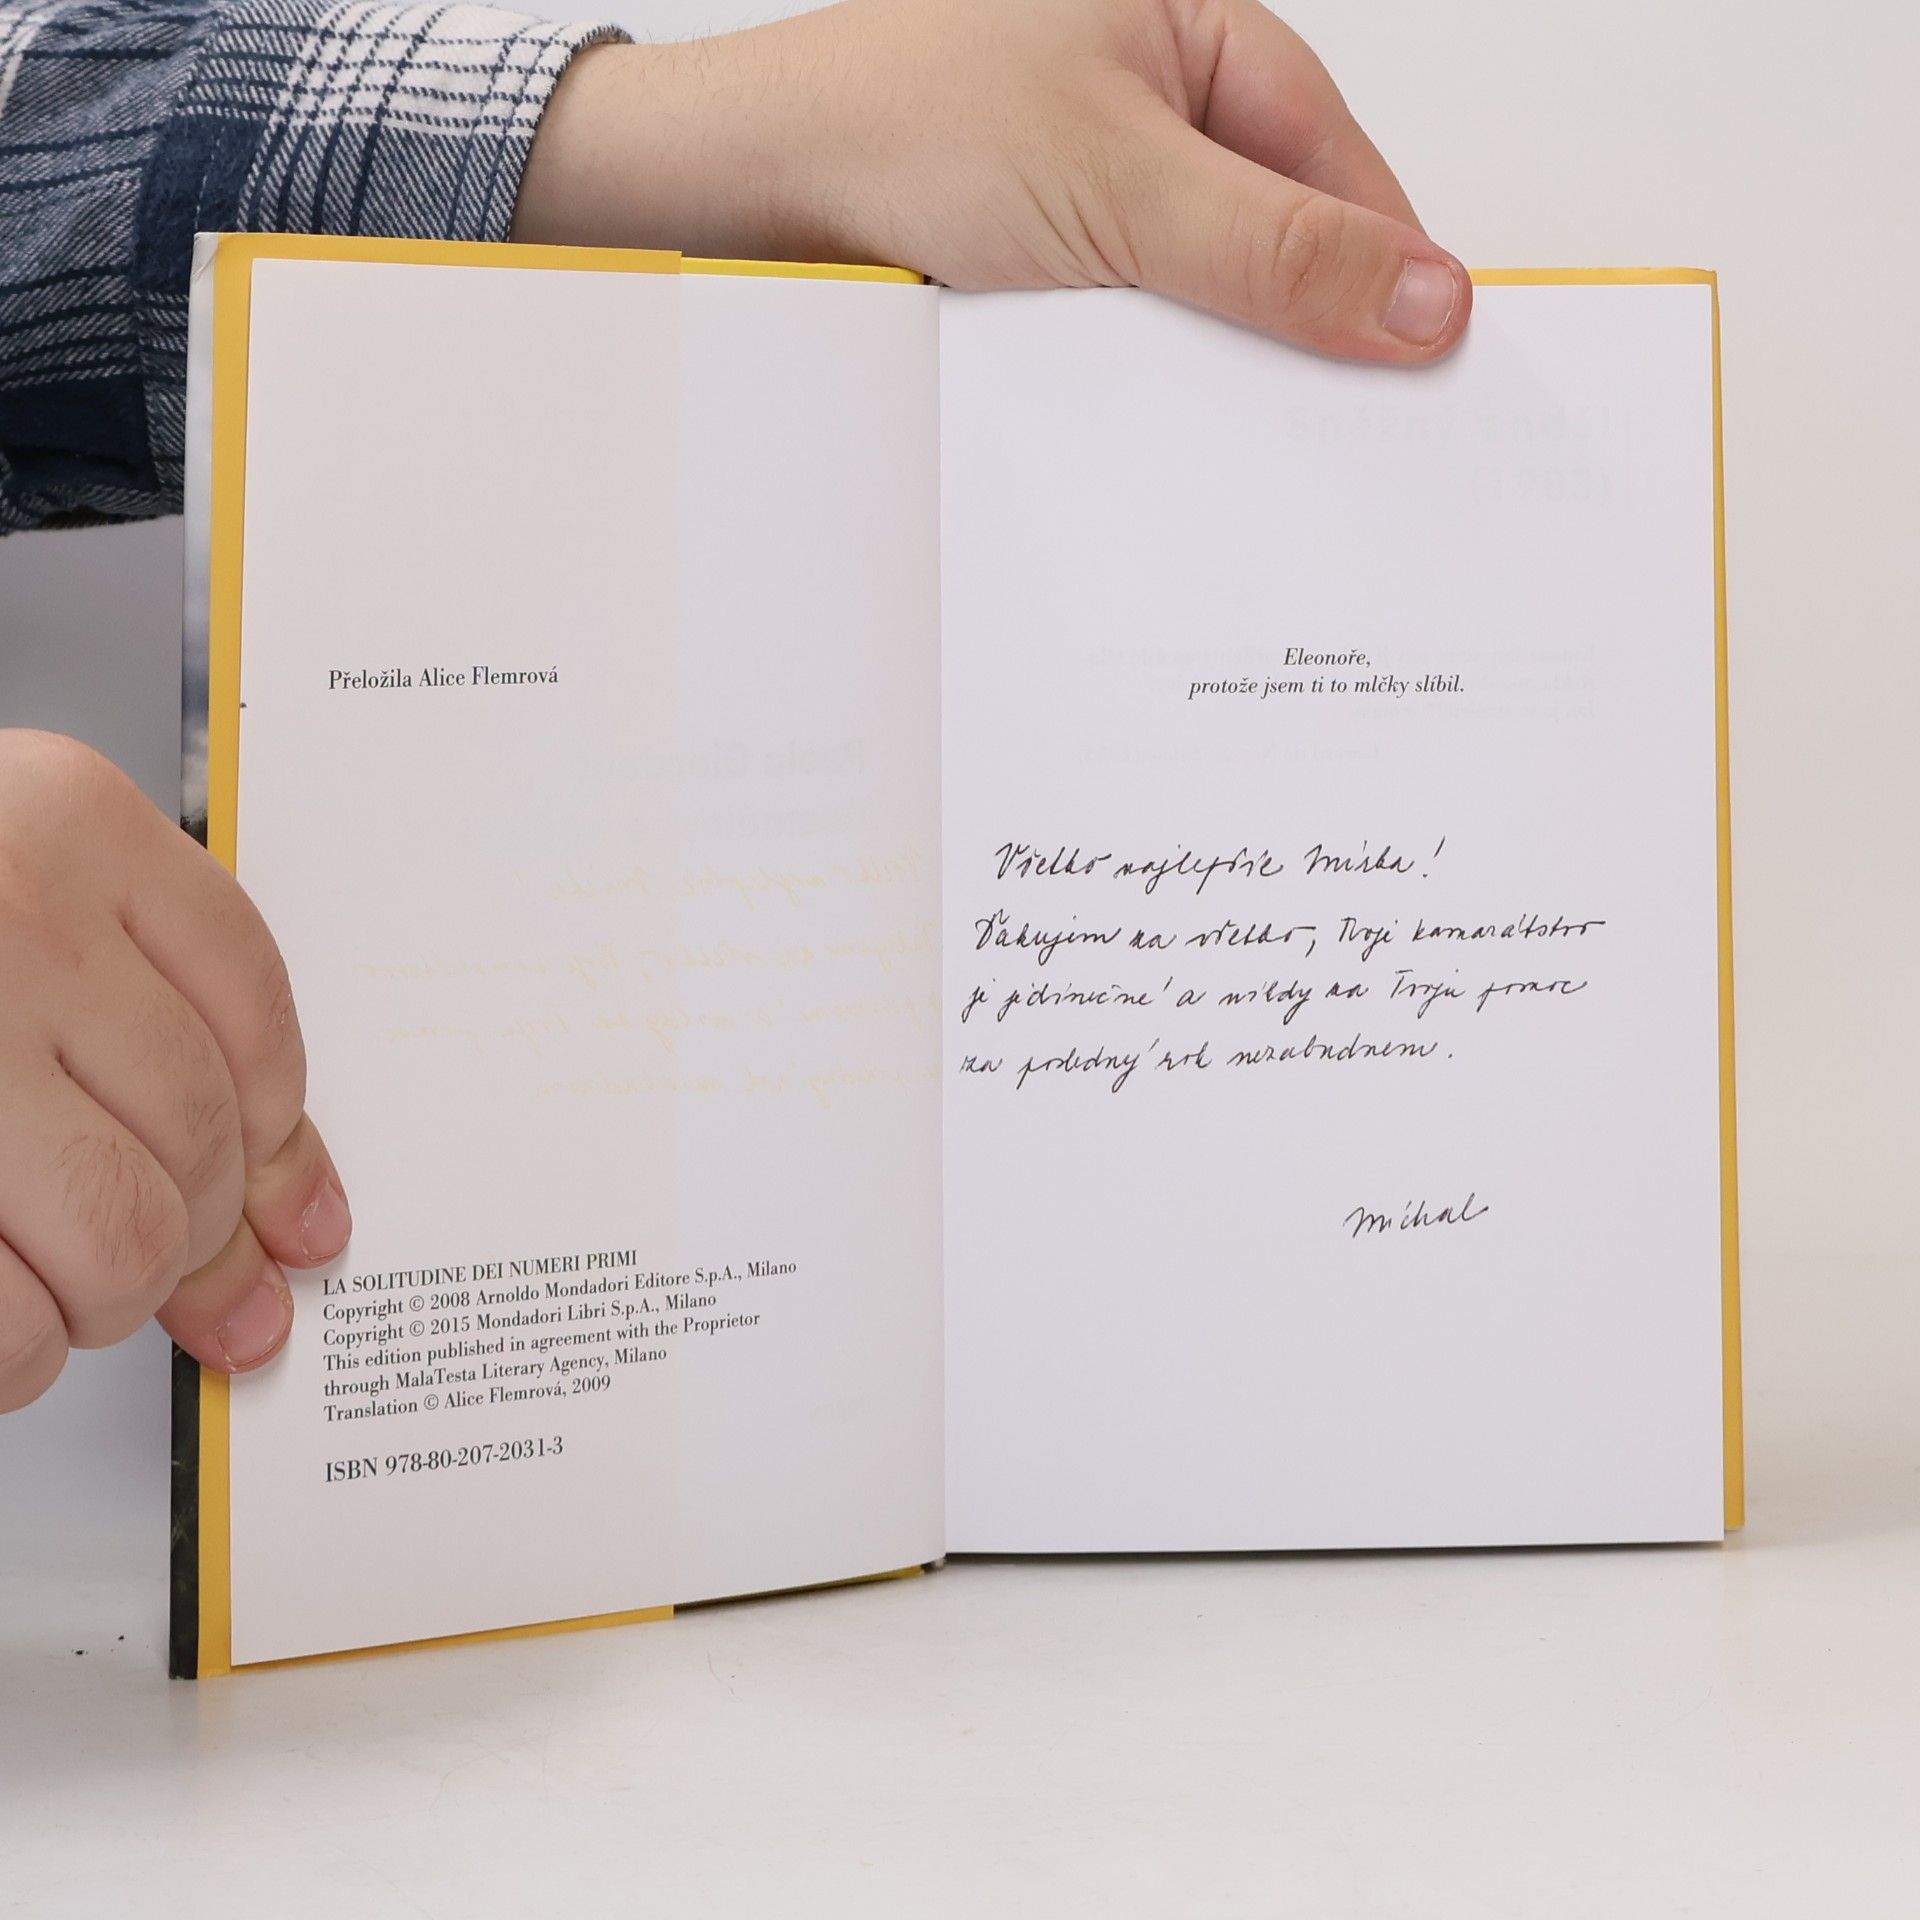 Přeložila Alice Flemrová
LA SOLITUDINE DEI NUMERI PRIMI
Copyright © 2008 Arnoldo Mondadori Editore S.p.A., Milano
Copyright © 2015 Mondadori Libri S.p.A., Milano
This edition published in agreement with the Proprietor
through MalaTesta Literary Agency, Milano
Translation © Alice Flemrová, 2009
ISBN 978-80-207-2031-3
Sněžný anděl
(1983)
Eleonoře,
protože jsem ti to mlčky slíbil.
Všetko najlepšie Mirka!
Ďakujem za všetko, Tvoje kamarátstvo
je jedinečné a nikdy na Tvoju pomoc
za posledný rok nezabudnem.
Michal